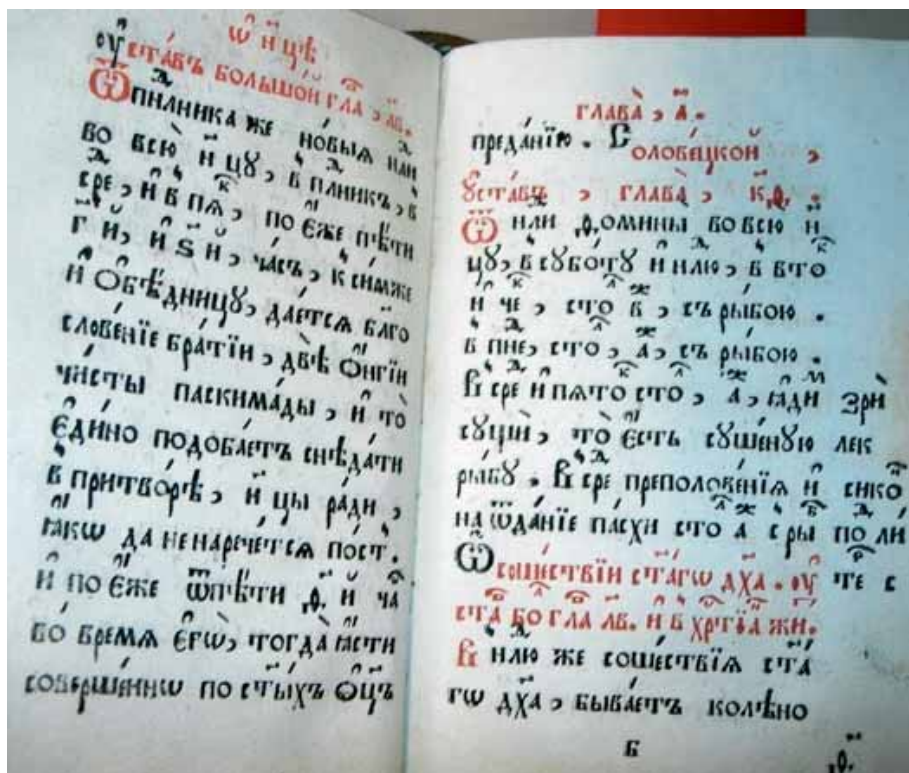 ѡ҆ н҃цѣ
оу҆ста́въ большо́й гла̀, л҃в.
Ѿ пнⷣлника же но́выѧ нⷣли
во всю̀ н҃цꙋ, в̾ пⷣлникъ, в̾
срⷣе, и҆ в̾ пѧⷦ҇, по є҆́же пѣ́ти
г҃ й, и҆ ѕ҃ й, ча́съ, к̾ си́мже
и҆ ѻ҆бѣ́дницꙋ, дае́тсѧ бл҃го
слове́нїе бра́тїи, двѣ̀ ѻ҆нгїи
чи́сты паскима́ды, и҆ то̀
є҆ди́но подоба́етъ снѣда́ти
в̾ притво́рѣ, н҃ цы ра́ди,
ꙗ҆́кѡ да не наре́четсѧ по́ст̾.
и҆ по є҆́же ѿпѣ́ти ѳ҃ й ча̀
во вре́мѧ є҆гѡ̀, тогда̀ ꙗ҆́сти
соверше́ннѡ по ст҃ы́хъ ѻ҆ц҃ъ
глава̀, а҃.
преда́нїю. Солове́цкой,
ᲂу҆ста́въ, глава̀, к҃ѳ.
Ѿ нⷣли ѳомины̀ во всю̀ н҃
цꙋ, в̾ сꙋбо́тꙋ и҆ нⷣлю, в̾ втоⷬ
и҆ чеⷦ, стоⷧ в҃ж, съ ры́бою.
в̾ пнⷣе, стоⷧ, а҃ж, съ ры́бою.
В̾ срⷣе и҆ пѧтоⷦ стоⷧ, а҃ж, ꙗ҆ди зрѝ
сꙋщїѝ, то̀ є҆́сть сꙋше́нꙋю лек
ры́бꙋ. В̾ срⷣе преполове́нїѧ и҆ сикоⷭ
на ѿда́нїе па́схи стоⷧ а҃ж с̾ рыⷠ по лиⷭ
Ѡ҆ соше́ствїи ст҃а́гѡ дх҃а. ᲂу҆ те с
ста́в боⷧ глаⷡ л҃в. и҆ в̾ хрⷭтїаⷩ жи́.
В̾ нⷣлю же соше́ствїѧ ст҃а́
гѡ дх҃а, быва́етъ колѣно
Б
ѳ҃